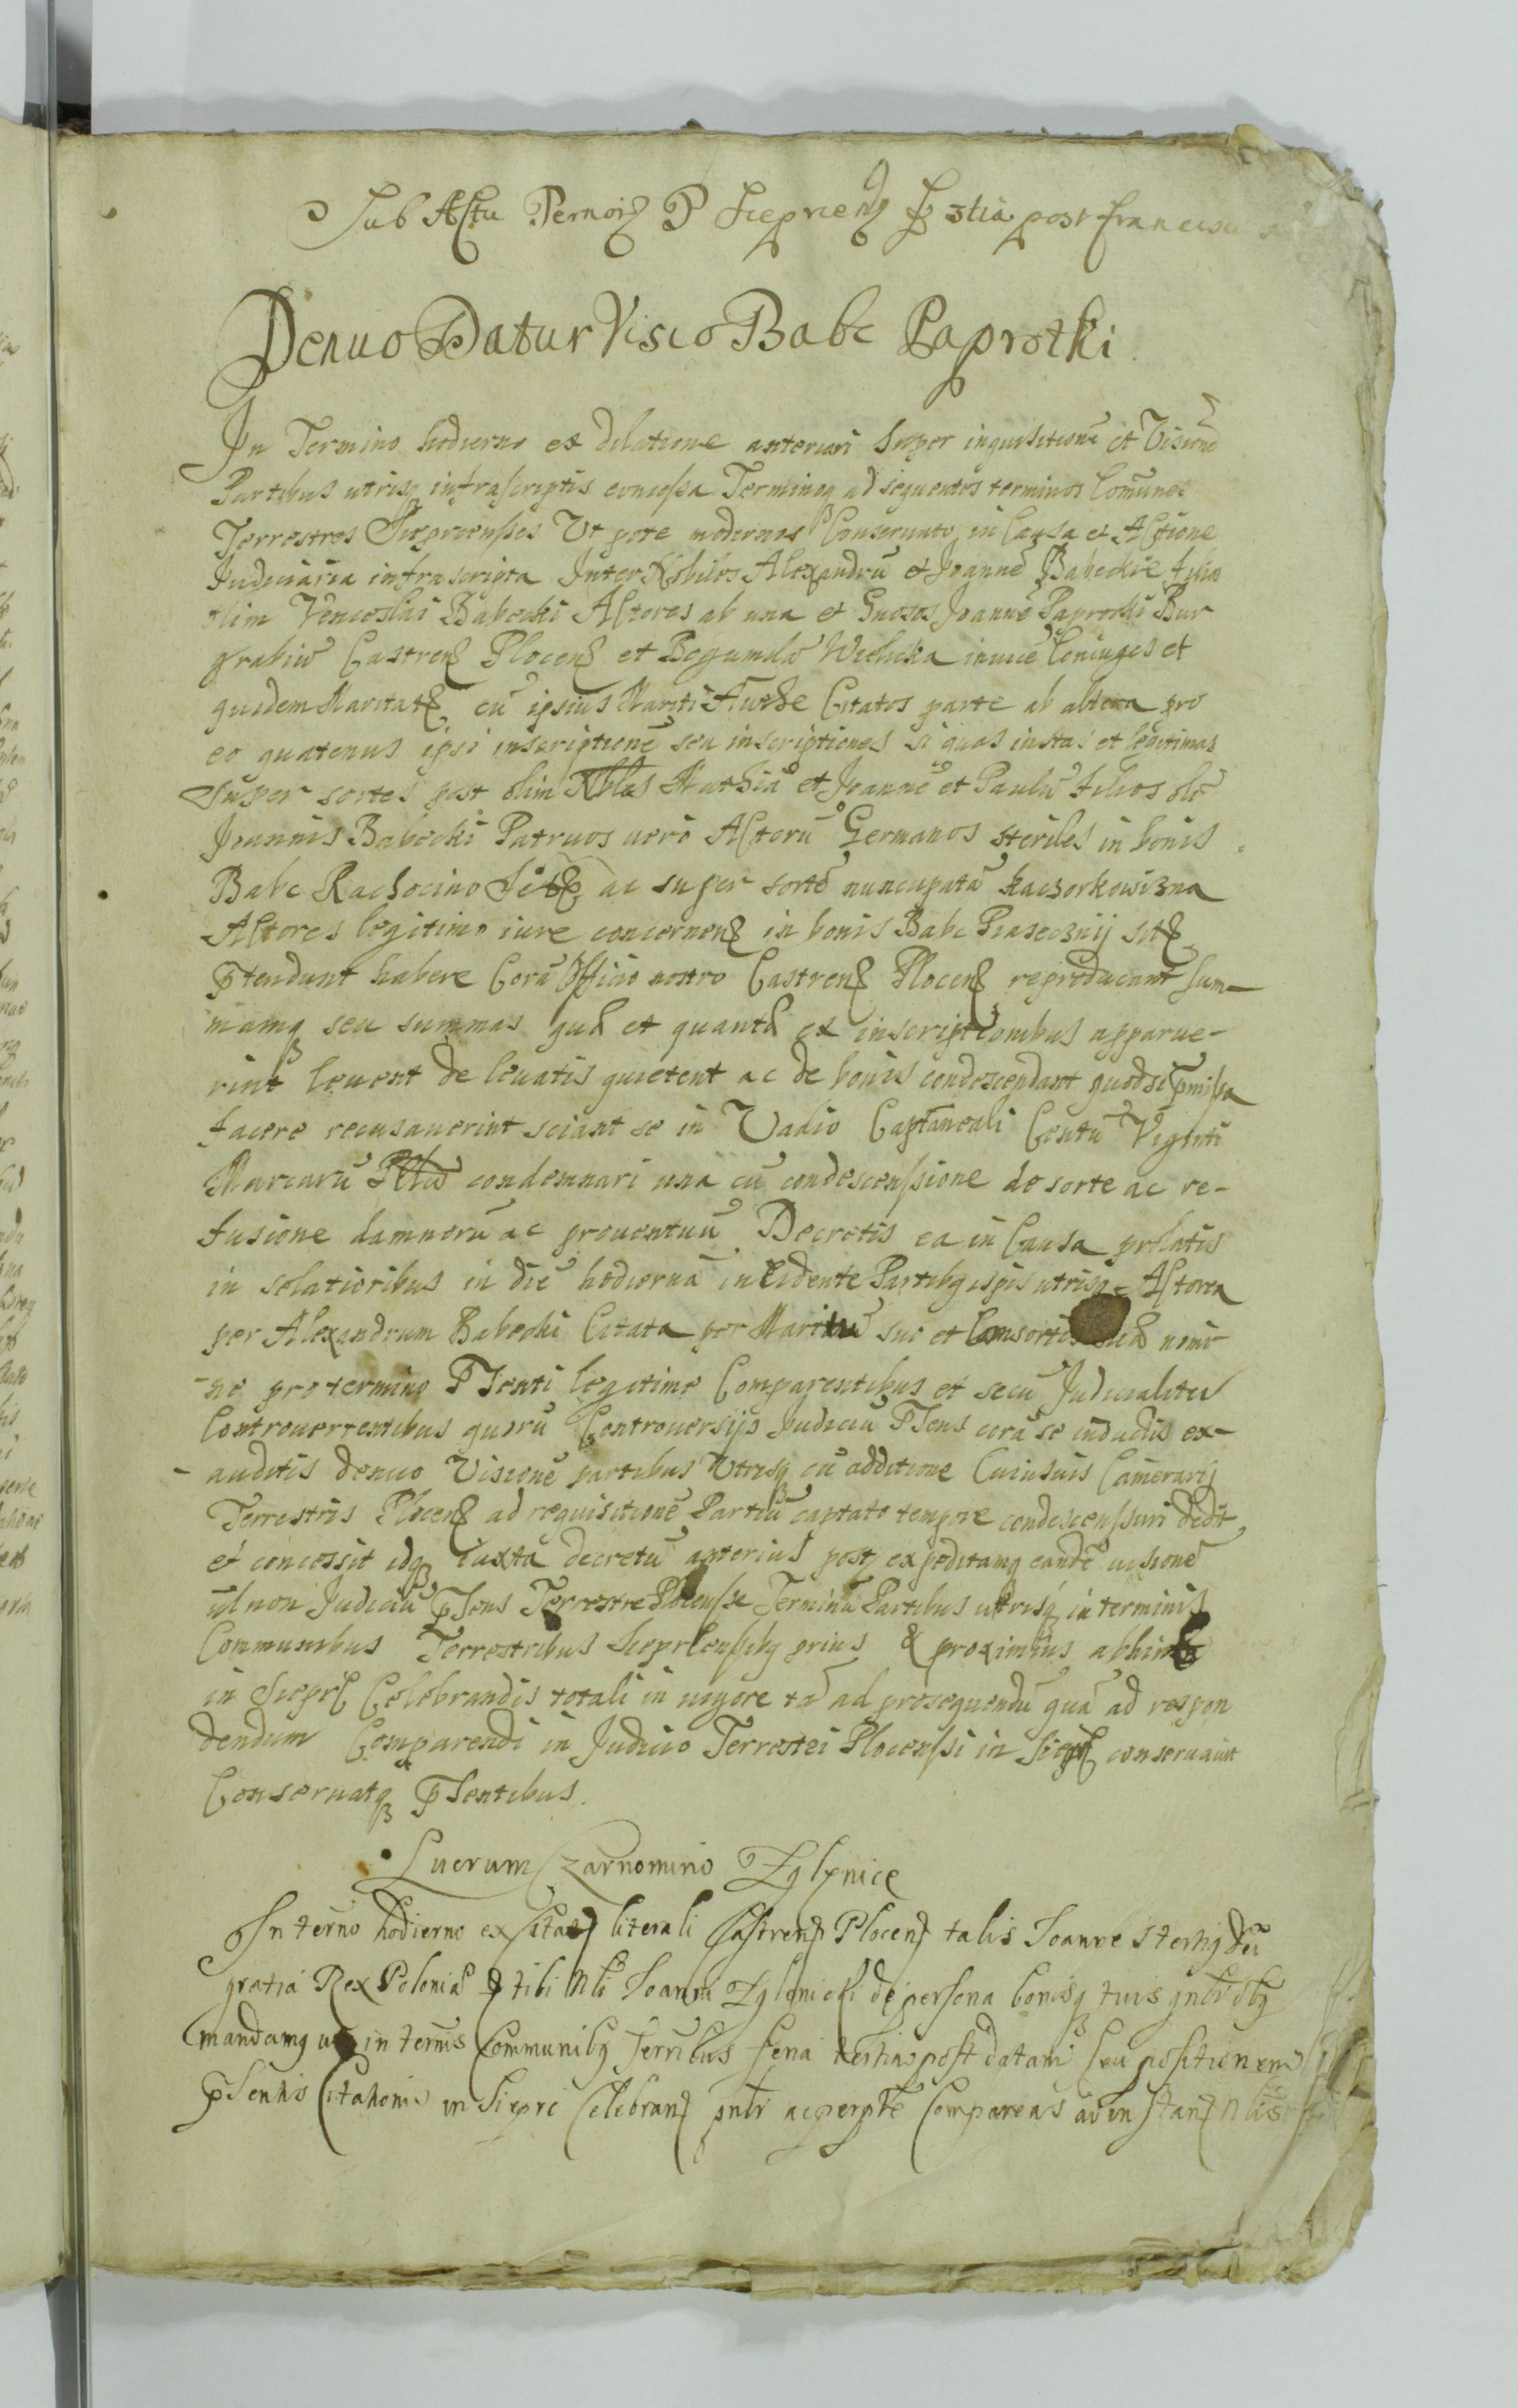 Sub Actu Termor P Sieprcen F 3tia post francisci
Denuo Datur Visio Babe Paprotki
In Termino hodierno ex dilatione anteriori super inquisitione et Visione
Partibus utrisq infrascriptis concessa Terminoq ad sequentes terminos Comunes
Terrestres Sieprcenses Ut pote modernos Conseruato in Causa et Actione
Judiciaria infrascripta Inter Nobiles Alexandrũ et Joannẽ Babeckie filios
olim Venceslai Babecki Actores ab una et Gnosos Joannẽ Paprocki Bur
grabiũ Castren Plocen et Bogumilã Wielicka inuicẽ Coniuges et
quidem Maritatã cũ ipsius Mariti Authe Citatos parte ab altera pro
eo quatenus ipsi inscriptionẽ seu inscriptiones si quas iustas et legitimas
super sortes post olim Nbles Mathiã et Joannẽ et Paulũ filios olĩ
Joannis Babecki Patruos uero Actorũ Germanos steriles in bonis
Babe Rachocino Sitas ac super sortẽ nuncupatã Kaczorkowizna
Actores legitimo iure concernen in bonis Babe Piasecznij sitã
ptendunt habere Corã Officio nostro Castren Plocen reproducant sum-
mamq seu summas quã et quantã ex inscriptionibus apparue-
rint leuent de leuatis quietent ac de bonis condescendant quodsi pmissa
facere recusauerint sciant se in Vadio Captaneali Centũ Viginti
Marcarũ Pltũ condemnari una cũ condescensione de sorte ac re-
fusione damnorũ ac prouentuũ Decretis ea in Causa prolatis
in solatioribus in diẽ hodiernã incidente Partibq ipsis utrisq Actorea
per Alexandrum Babecki Citata per Maritũ sui et Consortis suã nomi-
ne pro termino PSenti legitime Comparentibus et secũ Judicialiter
Controuertentibus quorũ Controuersijs Judiciũ PSens corã se inductis ex-
auditis denuo Visionẽ partibus Utrisq cũ additione Cuiusuis Camerarij
Terrestris Plocen ad requisitionẽ Partiũ captato tempore condescensuri dedit
et concessit idq iuxta decretũ anterius post expeditamq eandẽ uisionẽ
uel non Judiciũ pSens Terrestre Plocense Terminũ Partibus utrisq in terminis
Communibus Terrestribus Sieprcensibq prius & proximius abhinc
in Sieprc Celebrandis totali in uigore tã ad prosequendũ quã ad respon
dendum Comparendi in Judicio Terrestri Plocensi in Sieprc conseruauit
Conseruatq pSentibus.
Lucrum Czarnomino Zglenice
In termo hodierno ex Citate literali Castren Plocen talis Joannes tertiq Dei
gratia Rex Poloniæ & tibi Nli Joanni Zglenicki de persona bonisq tuis gnlr obq
mandamq ut in termis Communibq Terribus feria tertia post datam seu positionem
pSentis Citationis in Sieprc Celebran pntr ac perpte Compareas ad instan Nlis